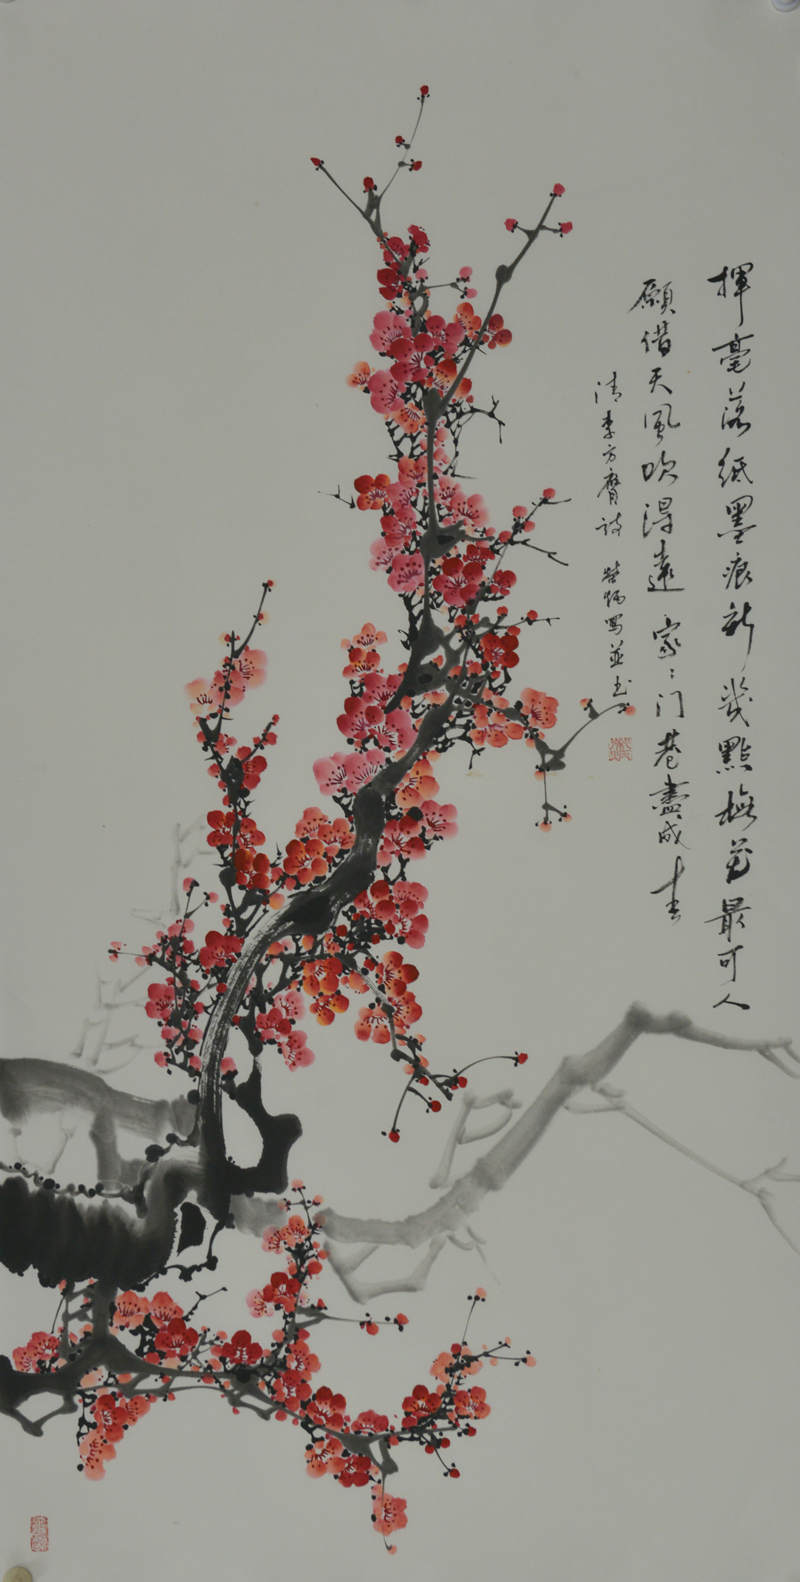 揮毫落紙墨痕新幾點梅花最可人
願借天風吹得遠家〻门巷盡成春
清李方膺詩 荣炳写並书